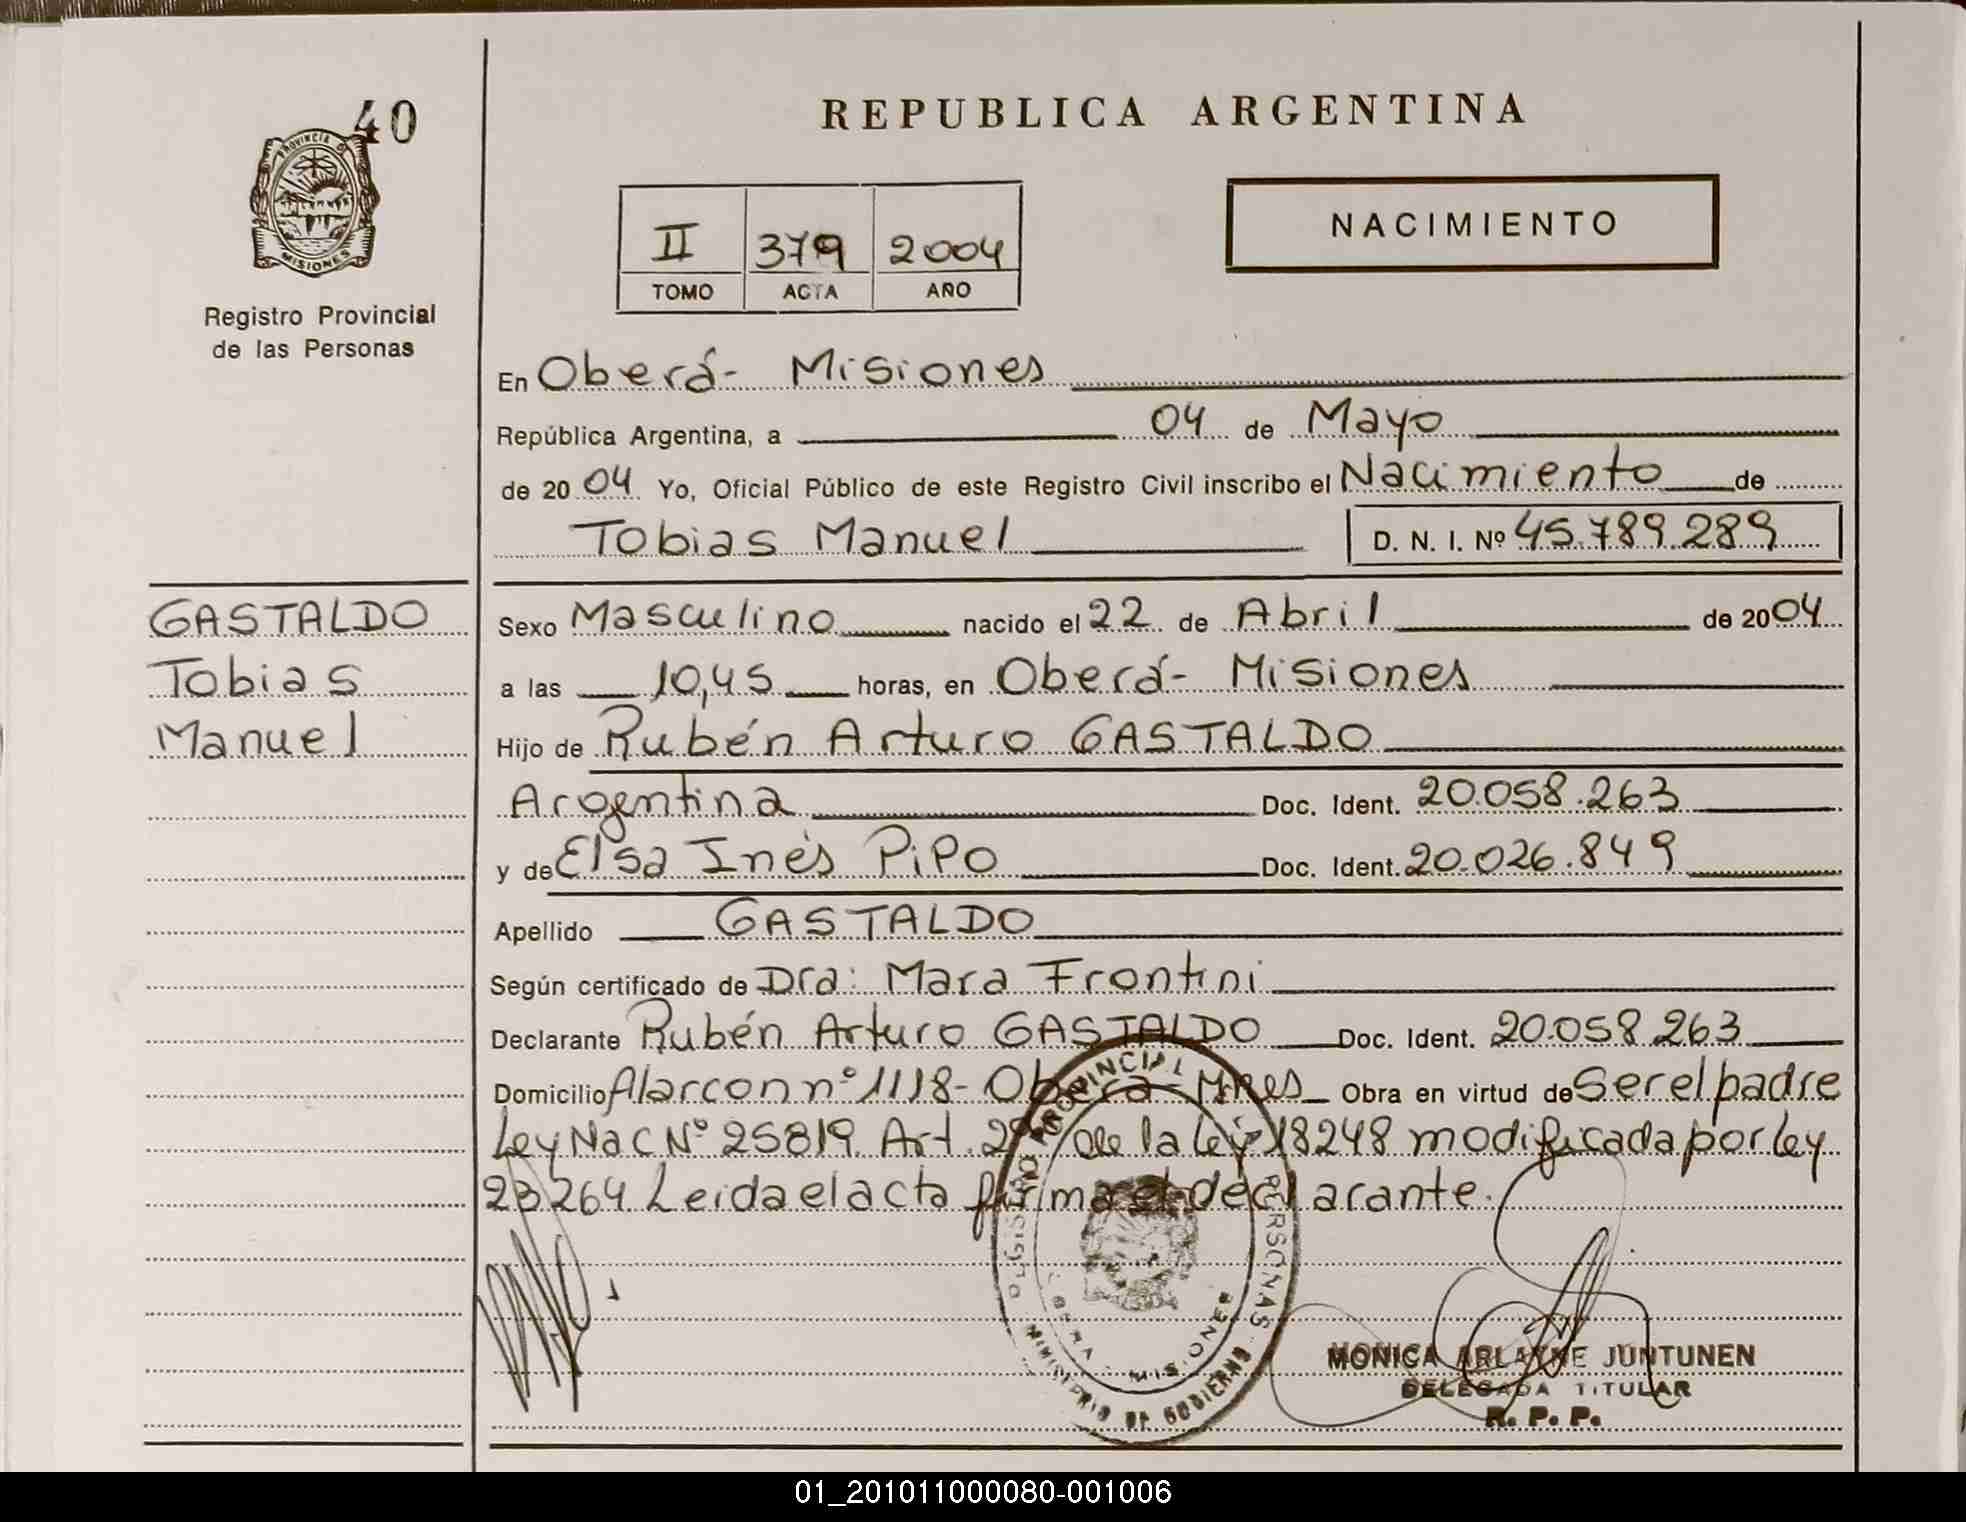 40
PROVINCIA DE
MISIONES
Registro Provincial
de las Personas
REPUBLICA ARGENTINA
II 379 2004
TOMO ACTA AÑO
NACIMIENTO
En Oberá- Misiones
República Argentina, a 04 de Mayo
de 2004 Yo, Oficial Público de este Registro Civil inscribo el Nacimiento de
Tobias Manuel D. N. I. Nº 45.789.289
GASTALDO
Tobias
Manuel
Sexo Masculino nacido el 22 de Abril de 2004
a las 10,45 horas, en Oberá- Misiones
Hijo de Rubén Arturo GASTALDO
Argentina Doc. Ident. 20.058.263
y de Elsa Inés PiPo Doc. Ident. 20.026.849
Apellido GASTALDO
Según certificado de Dra: Mara Frontini
Declarante Rubén Arturo GASTALDO Doc. Ident. 20.058.263
Domicilio Alarcon nº 1118- Oberá- Mnes Obra en virtud de Ser el padre
Ley Nac Nº 25819. Art. 29 de la Ley 18248 modificada por ley
23264 Leida el acta firma el declarante.
REGISTRO PROVINCIAL PERSONAS
OBERA - MISIONES
MINISTERIO DE GOBIERNO
MONICA ARLAYNE JUNTUNEN
DELEGADA TITULAR
R. P. P.
01_201011000080-001006